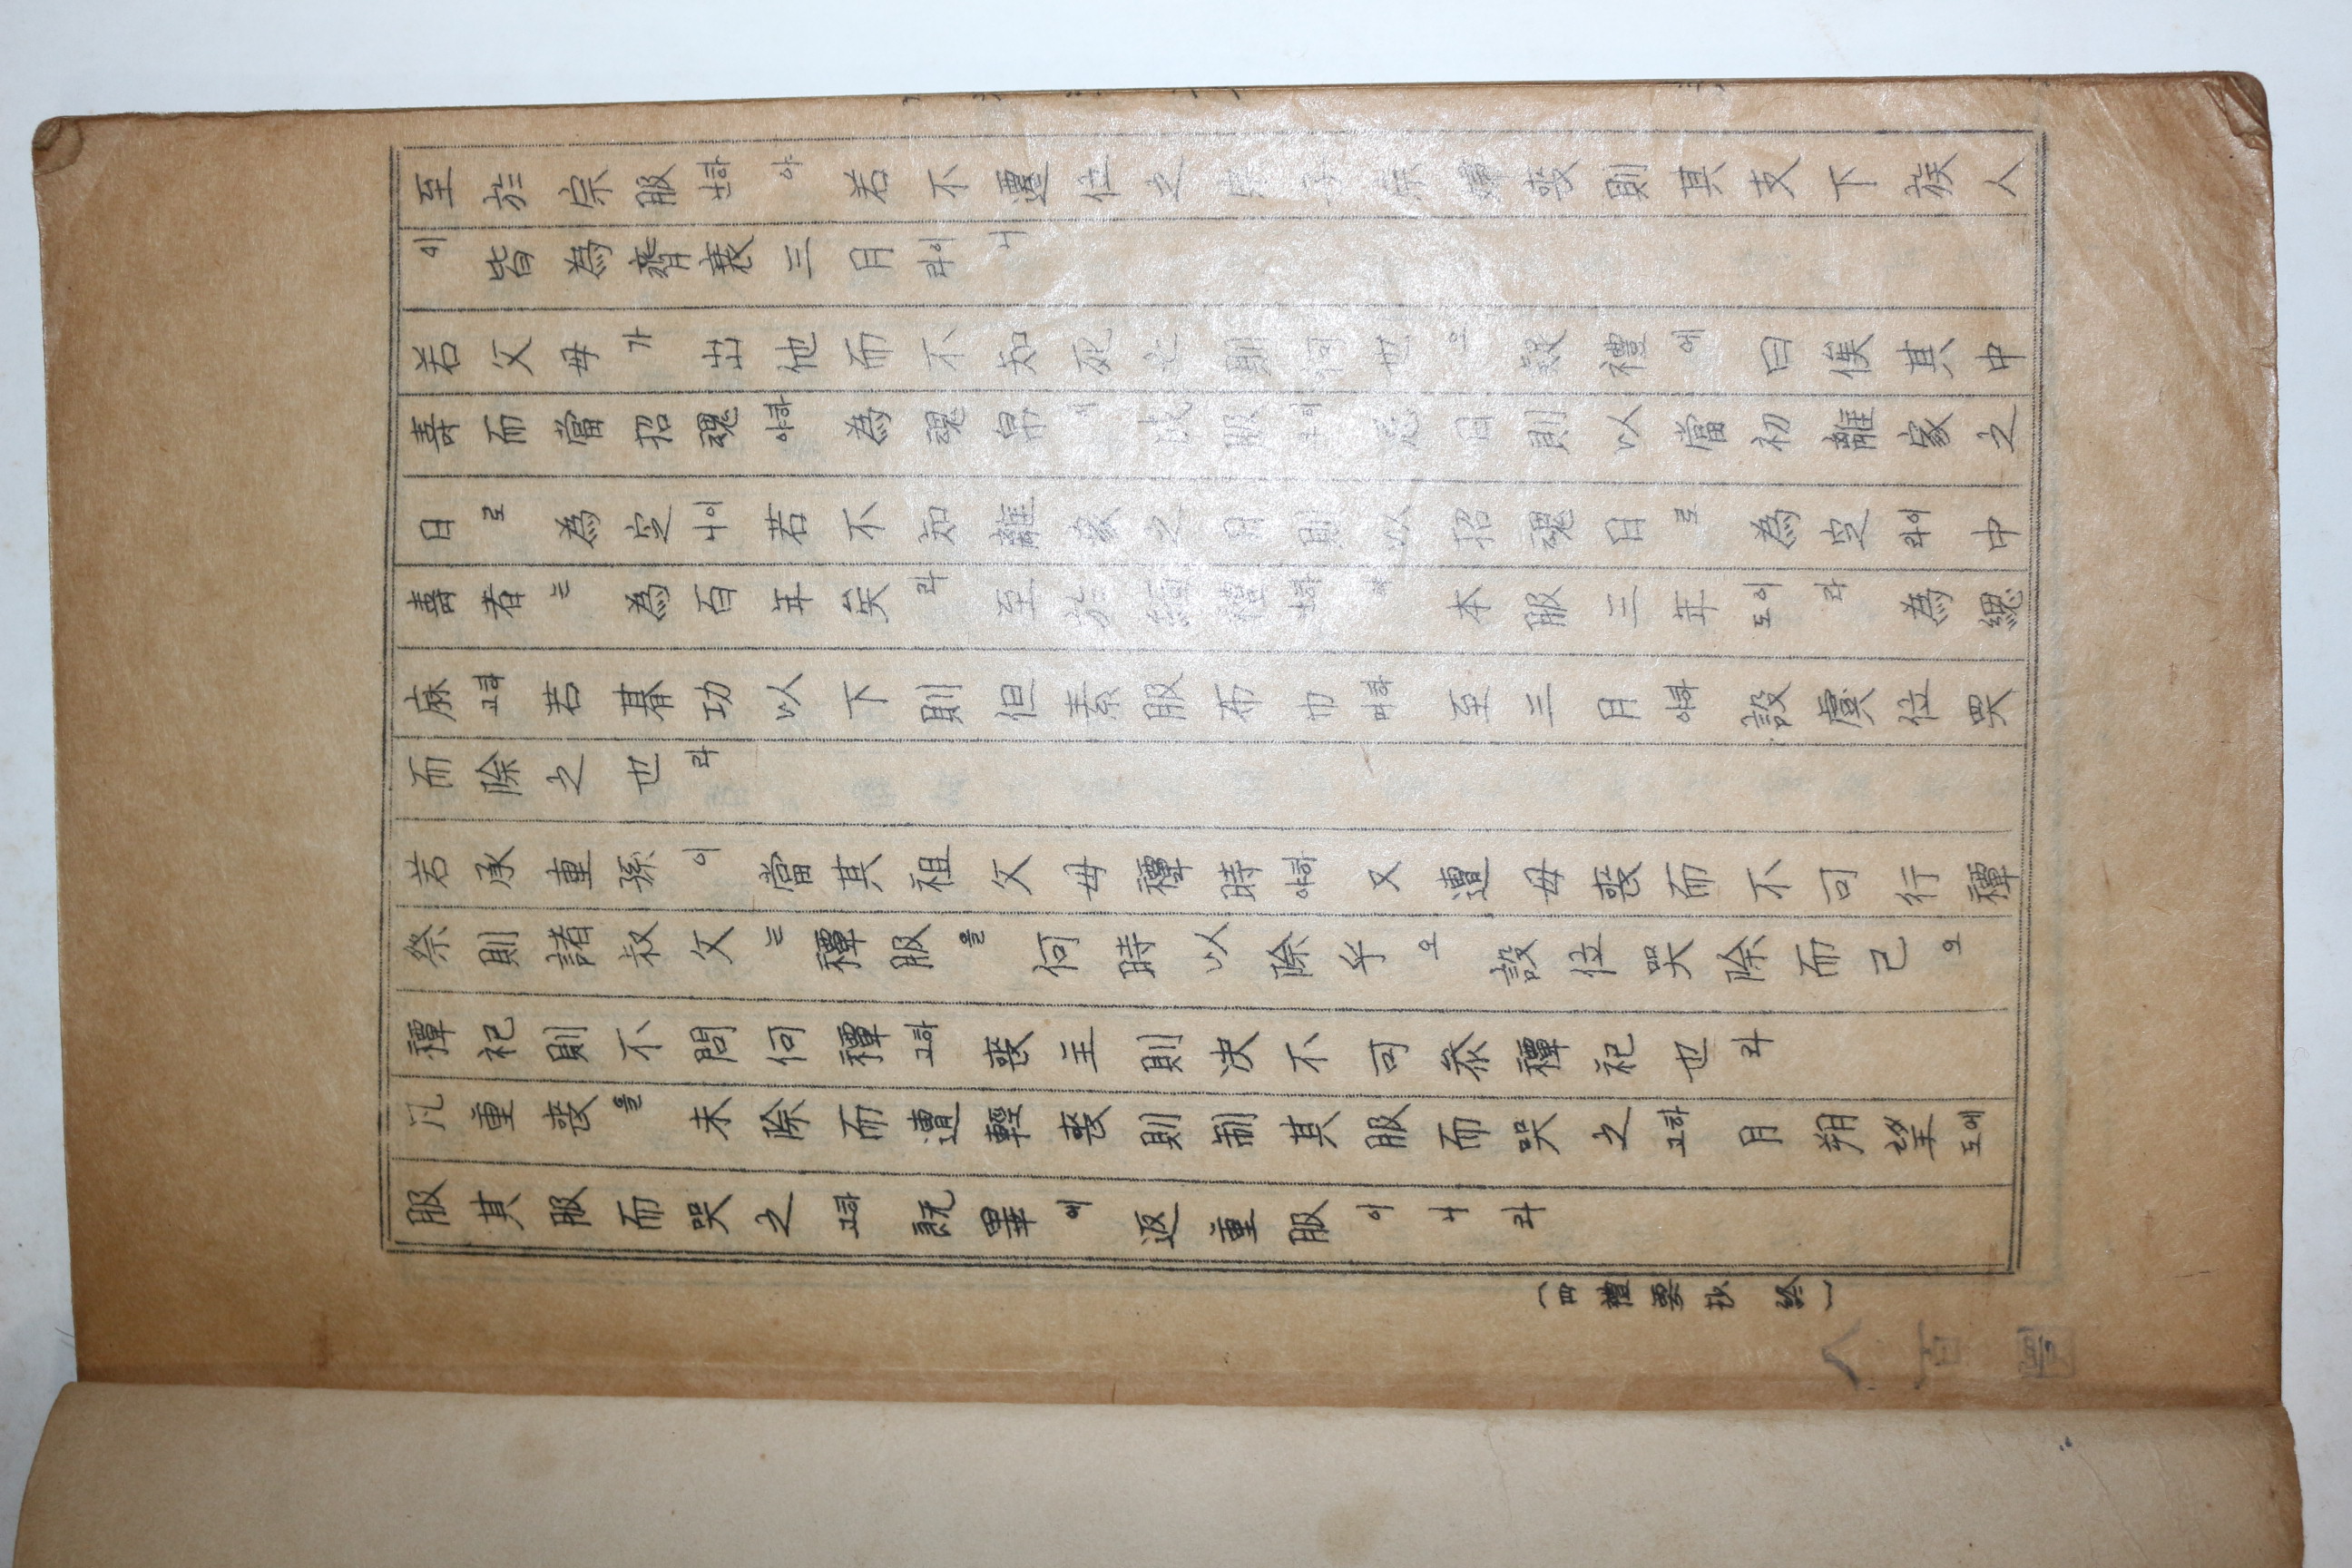 至於宗服난하야若不遷位之宗子宗婦喪則其支下族人
이皆為齊衰三月라이니
若父母가出他而不知死亡則何也오疑禮에曰俟其中
壽而當招魂야하為魂帛에成服고하忌日則以當初離家之
日로為定니이若不知離家之月則以招魂日로為定라이中
壽者는為百年矣라至於緬禮난하야本服三年도이라為緦
麻고하若朞功以下則但素服布巾며하至三月야하設虞位哭
而除之也라
若承重孫이當其祖父母禫時야하又遭母喪而不可行禫
祭則諸叔父는禫服을何時以除乎오設位哭除而已오
禫祀則不問何禫고하喪主則决不可叅禫祀也라
凡重喪을未除而遭輕喪則制其服而哭之고하月朔望도에
服其服而哭之고하旣畢에返重服이니라
(四禮要抄 終)
八百